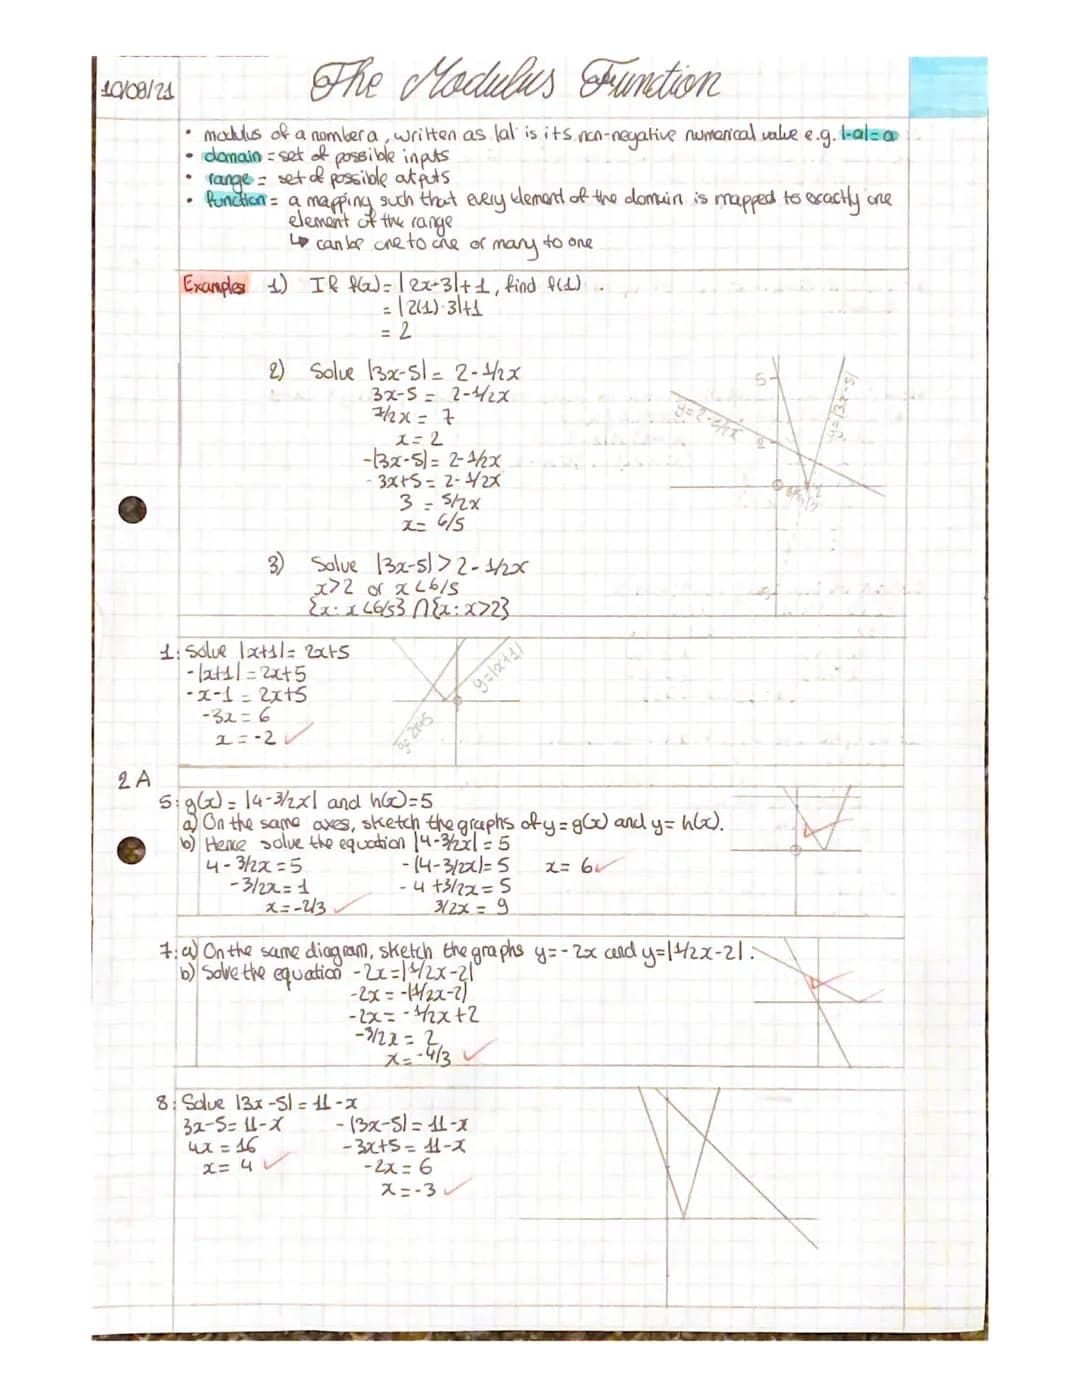 10/08/21
The Modulus Function
• modulus of a number a, written as |a| is its non-negative numerical value e.g. |-a|= a
• domain = set of possible inputs
• range = set of possible outputs
• function = a mapping such that every element of the domain is mapped to exactly one
element of the range
↳ can be one to one or many to one
Examples 1) If f(x)= |2x-3|+1, find f(1).
= |2(1)-3|+1
= 2
2) Solve |3x-5| = 2-1/2x
3x-5 = 2-1/2x
7/2x = 7
x = 2
-|3x-5| = 2-1/2x
-3x+5 = 2-1/2x
3 = 5/2x
x = 6/5
5
y=2-1/2x
y=|3x-5|
2
3) Solve |3x-5| > 2-1/2x
x>2 or x<6/5
{x: x<6/5} ∩ {x: x>2}
1: Solve |x+1| = 2x+5
-|x+1| = 2x+5
-x-1 = 2x+5
-3x = 6
x = -2 ✓
y=|x+1|
y=2x+5
2A
5: g(x) = |4-3/2x| and h(x)=5
a) On the same axes, sketch the graphs of y=g(x) and y=h(x).
b) Hence solve the equation |4-3/2x| = 5
4-3/2x = 5 -(4-3/2x) = 5 x = 6 ✓
-3/2x = 1 -4+3/2x = 5
x = -2/3 ✓ 3/2x = 9
7: a) On the same diagram, sketch the graphs y=-2x and y=|1/2x-2|.
b) Solve the equation -2x=|1/2x-2|
-2x = -(1/2x-2)
-2x = -1/2x+2
-3/2x = 2
x = -4/3 ✓
8: Solve |3x-5| = 11-x
3x-5 = 11-x -|3x-5| = 11-x
4x = 16 -3x+5 = 11-x
x = 4 ✓ -2x = 6
x = -3 ✓